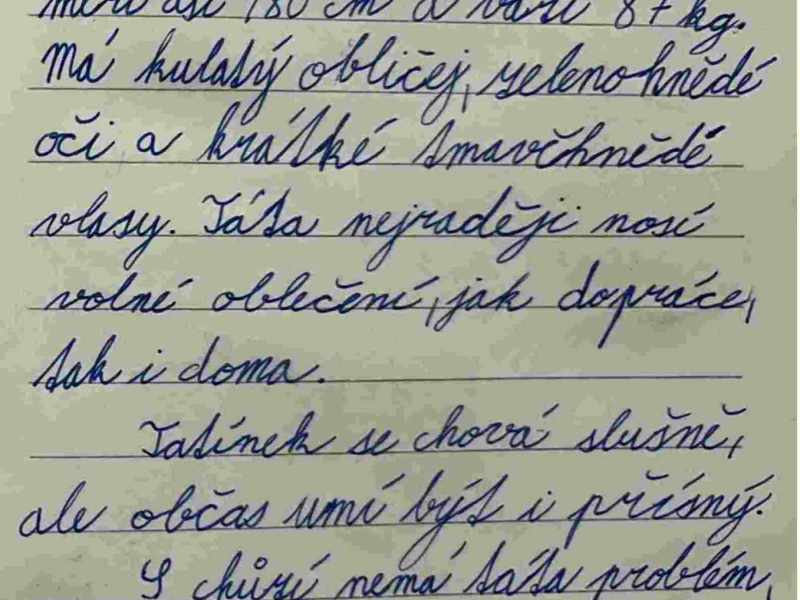 měří asi 180 cm a váží 87 kg.
Má kulatý obličej, zelenohnědé
oči a krátké tmavěhnědé
vlasy. Táta nejraději nosí
volné oblečení, jak dopráce,
tak i doma.
Tatínek se chová slušně,
ale občas umí být i přísný.
S chůzí nemá táta problém,